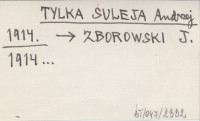 TYLKA SULEJA Andrzej
1914. → ZBOROWSKI J.
1914...